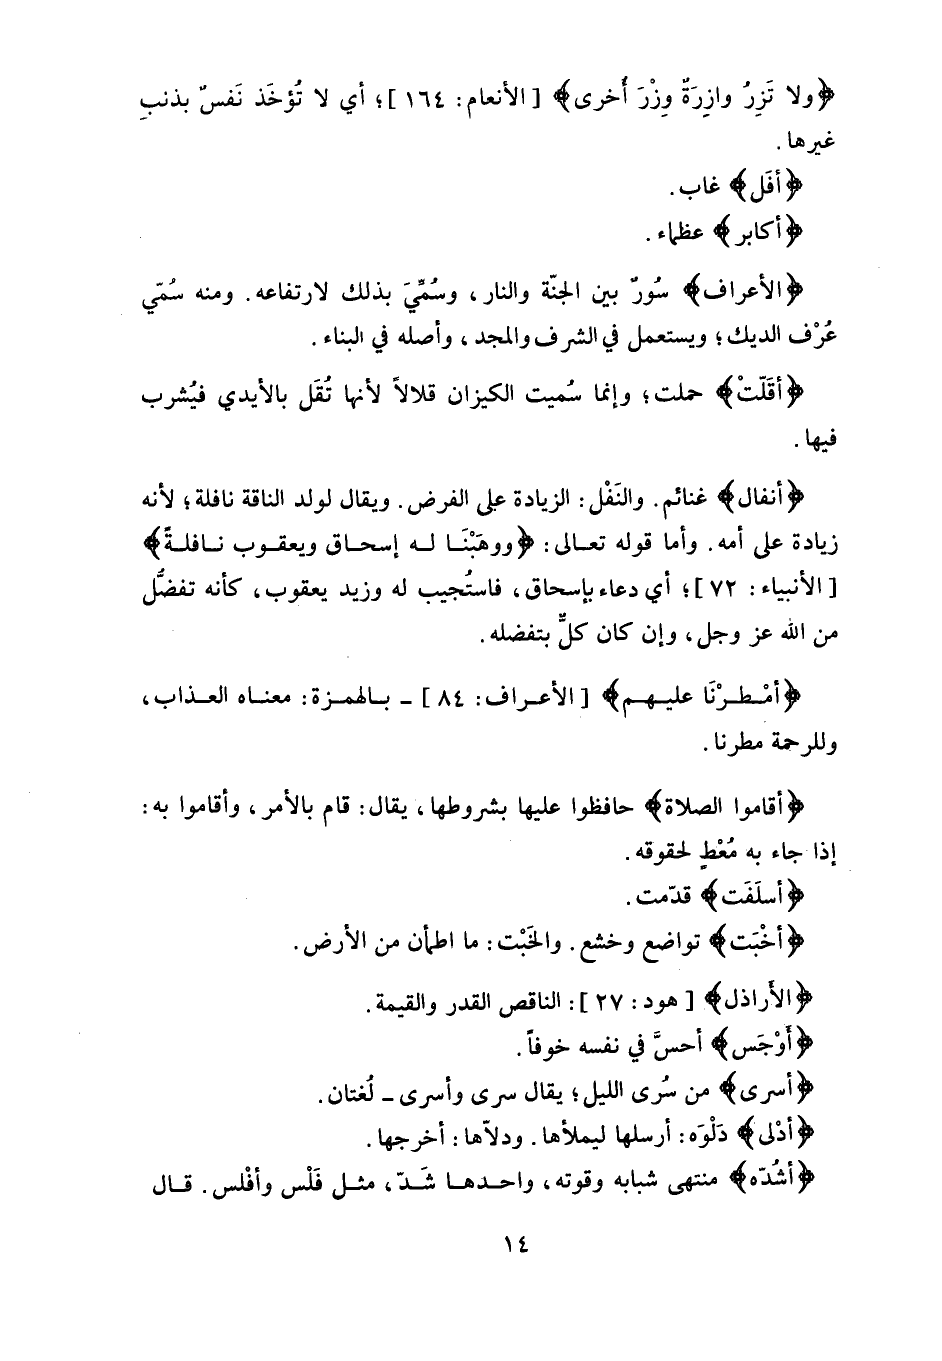 ﴿ولا تَزِرُ وازِرَةٌ وِزْرَ أُخرى﴾ [الأنعام: ١٦٤]؛ أي لا تُؤخَذ نَفسٌ بذنبِ
غيرها.
﴿أفَل﴾ غاب.
﴿أكابر﴾ عظماء.
﴿الأعراف﴾ سُورٌ بين الجنّة والنار، وسُمِّيَ بذلك لارتفاعه. ومنه سُمّي
عُرْف الديك؛ ويستعمل في الشرف والمجد، وأصله في البناء.
﴿أقَلّتْ﴾ حملت؛ وإنما سُميت الكيزان قلالاً لأنها تُقَل بالأيدي فيُشرب
فيها.
﴿أنفال﴾ غنائم. والنَفْل: الزيادة على الفرض. ويقال لولد الناقة نافلة؛ لأنه
زيادة على أمه. وأما قوله تعالى: ﴿ووهَبْنَا له إسحاق ويعقوب نافلةً﴾
[الأنبياء: ٧٢]؛ أي دعاء بإسحاق، فاستُجيب له وزيد يعقوب، كأنه تفضُّل
من الله عز وجل، وإن كان كلٌّ بتفضله.
﴿أمْطرْنَا عليهم﴾ [الأعراف: ٨٤] ـ بالهمزة: معناه العذاب،
وللرحمة مطرنا.
﴿أقاموا الصلاة﴾ حافظوا عليها بشروطها، يقال: قام بالأمر، وأقاموا به:
إذا جاء به مُعْطٍ لحقوقه.
﴿أسلَفَت﴾ قدّمت.
﴿أخْبَت﴾ تواضع وخشع. والخَبْت: ما اطمأن من الأرض.
﴿الأَراذل﴾ [هود: ٢٧]: الناقص القدر والقيمة.
﴿أَوْجَس﴾ أحسَّ في نفسه خوفاً.
﴿أسرى﴾ من سُرى الليل؛ يقال سرى وأسرى ـ لُغتان.
﴿أدْلى﴾ دَلْوَه: أرسلها ليملأها. ودلاّها: أخرجها.
﴿أشُدّه﴾ منتهى شبابه وقوته، واحدها شَدّ، مثل فَلْس وأفْلس. قال
١٤